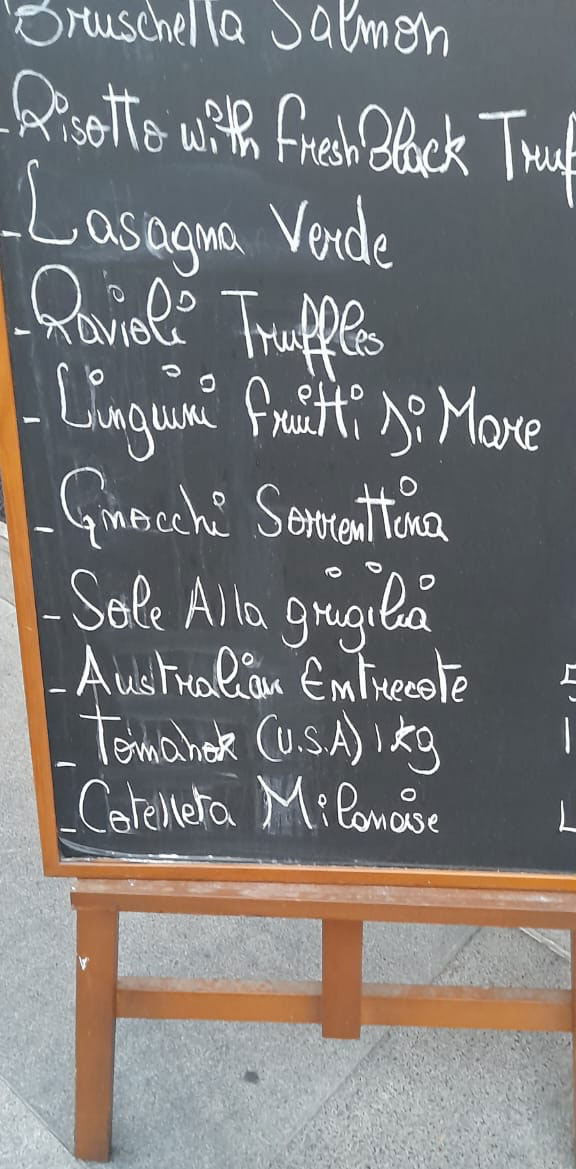 Bruschetta Salmon
- Risotto with Fresh Black Truf
- Lasagna Verde
- Ravioli Truffles
- Linguini fruitti Di Mare
- Gnocchi Sorrenttina
- Sole Alla grugilia
- Australian Entrecote 5
- Tomahok (U.S.A) 1kg 1
- Cotelleta Milanaise 4